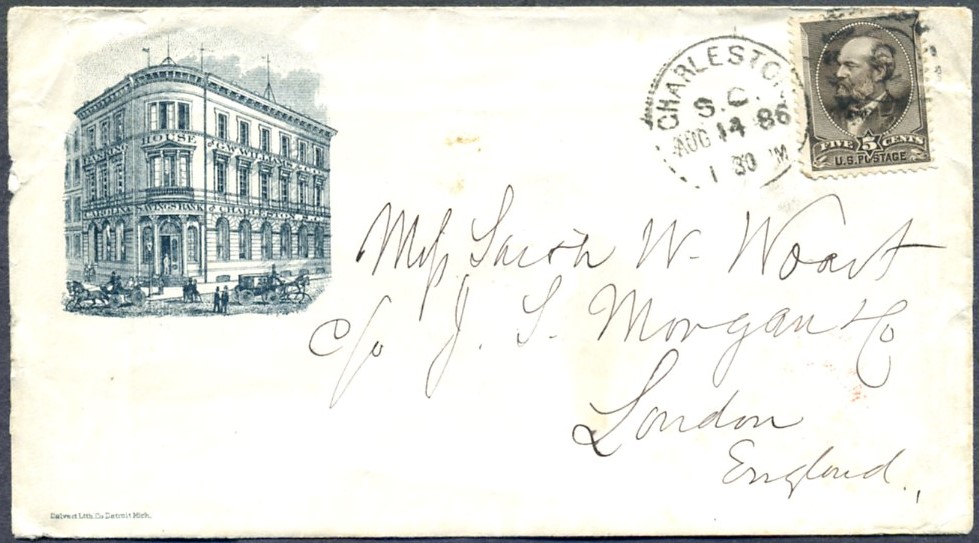 BANKING HOUSE OF GEO. W. WILLIAMS & CO.
CAROLINA SAVINGS BANK OF CHARLESTON S.C.
CHARLESTON
S.C.
AUG 14 86
1 30 PM
FIVE 5 CENTS
U.S. POSTAGE
Miss Sarah W.
c/o J. S. Morgan & Co
London
England.
Calvert Lith. Co. Detroit Mich.